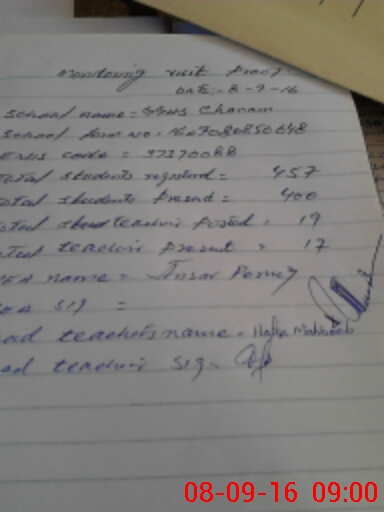 monitoring visit Proof
DATE:- 8-9-16
school name = GGHS Chanam
School form NO: 1607080850648
EMIS code = 37370088
otal students registered = 457
otal students Present = 400
otal teachers Posted = 19
otal teachers Present = 17
name = Ansar
sig =
ad teachers name = Hafsa Mahboob
ad teachers sig.
08-09-16 09:00